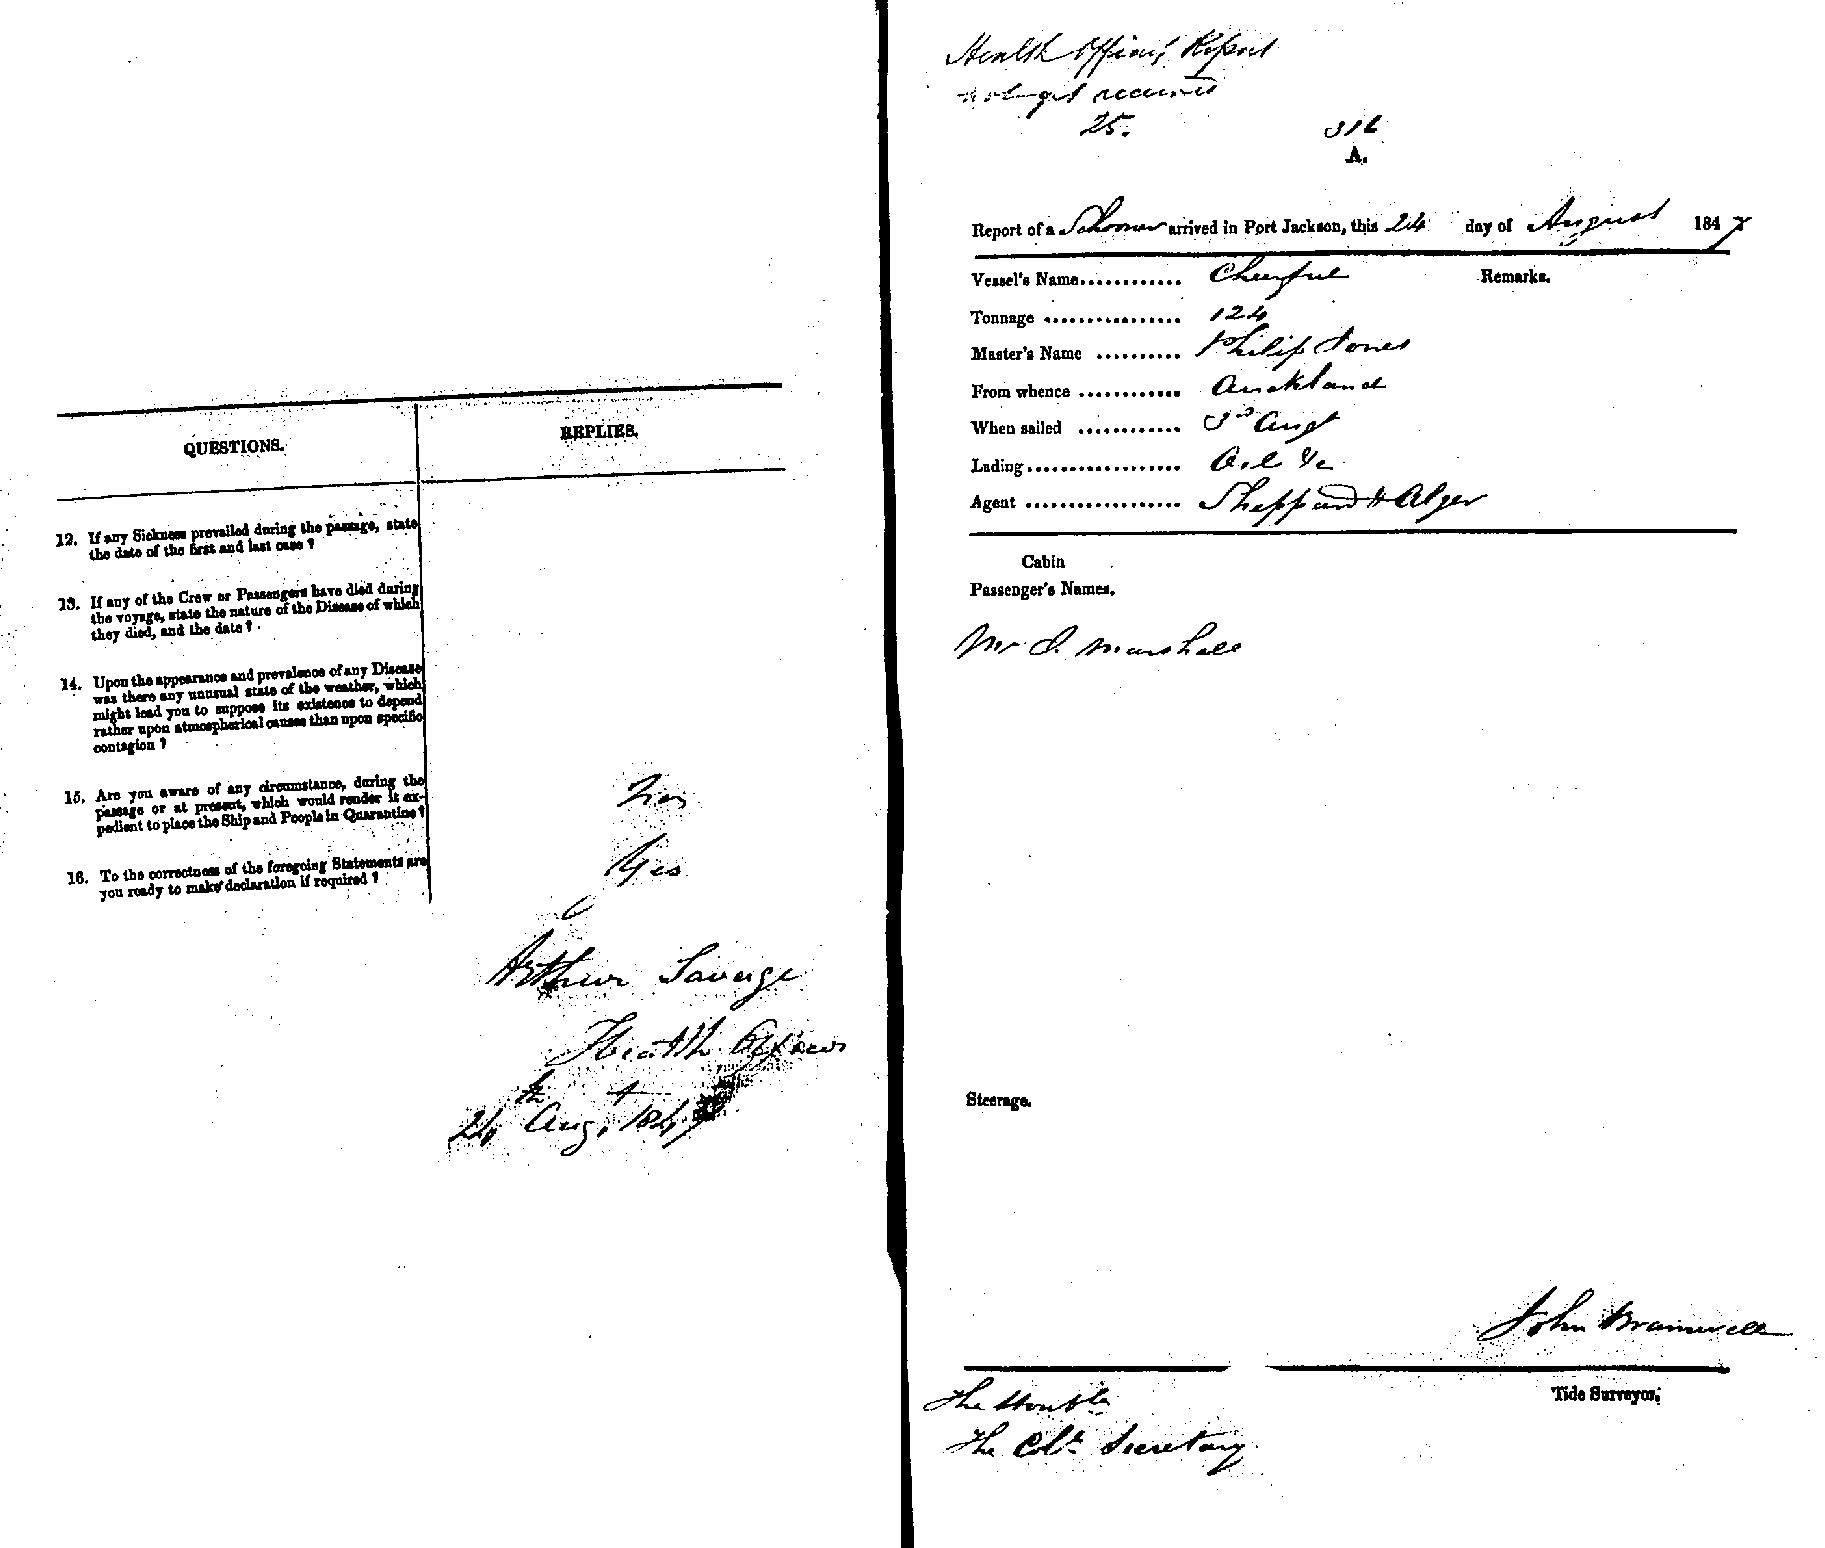 QUESTIONS.
REPLIES.
12. If any Sickness prevailed during the passage, state
the date of the first and last case ?
13. If any of the Crew or Passengers have died during
the voyage, state the nature of the Disease of which
they died, and the date ?
14. Upon the appearance and prevalence of any Disease
was there any unusual state of the weather, which
might lead you to suppose its existence to depend
rather upon atmospherical causes than upon specific
contagion ?
15. Are you aware of any circumstance, during the
passage or at present, which would render it ex-
pedient to place the Ship and People in Quarantine ?
16. To the correctness of the foregoing Statements are
you ready to make declaration if required ?
Yes
Arthur Savage
Health Officer
24th Augt 1847
Health Officer's Report
not yet received
25.
316
A.
Report of a Schooner arrived in Port Jackson, this 24 day of August 1847
Vessel's Name............ Cheerful
Remarks.
Tonnage ................ 124
Master's Name .......... Philip Jones
From whence ............ Auckland
When sailed ............ 3rd Augt
Lading.................. Oil &c
Agent .................. Sheppard & Alger
Cabin
Passenger's Names.
Mr I. Marshall
Steerage.
John Bramwell
Tide Surveyor,
The Honble
The Coll. Secretary